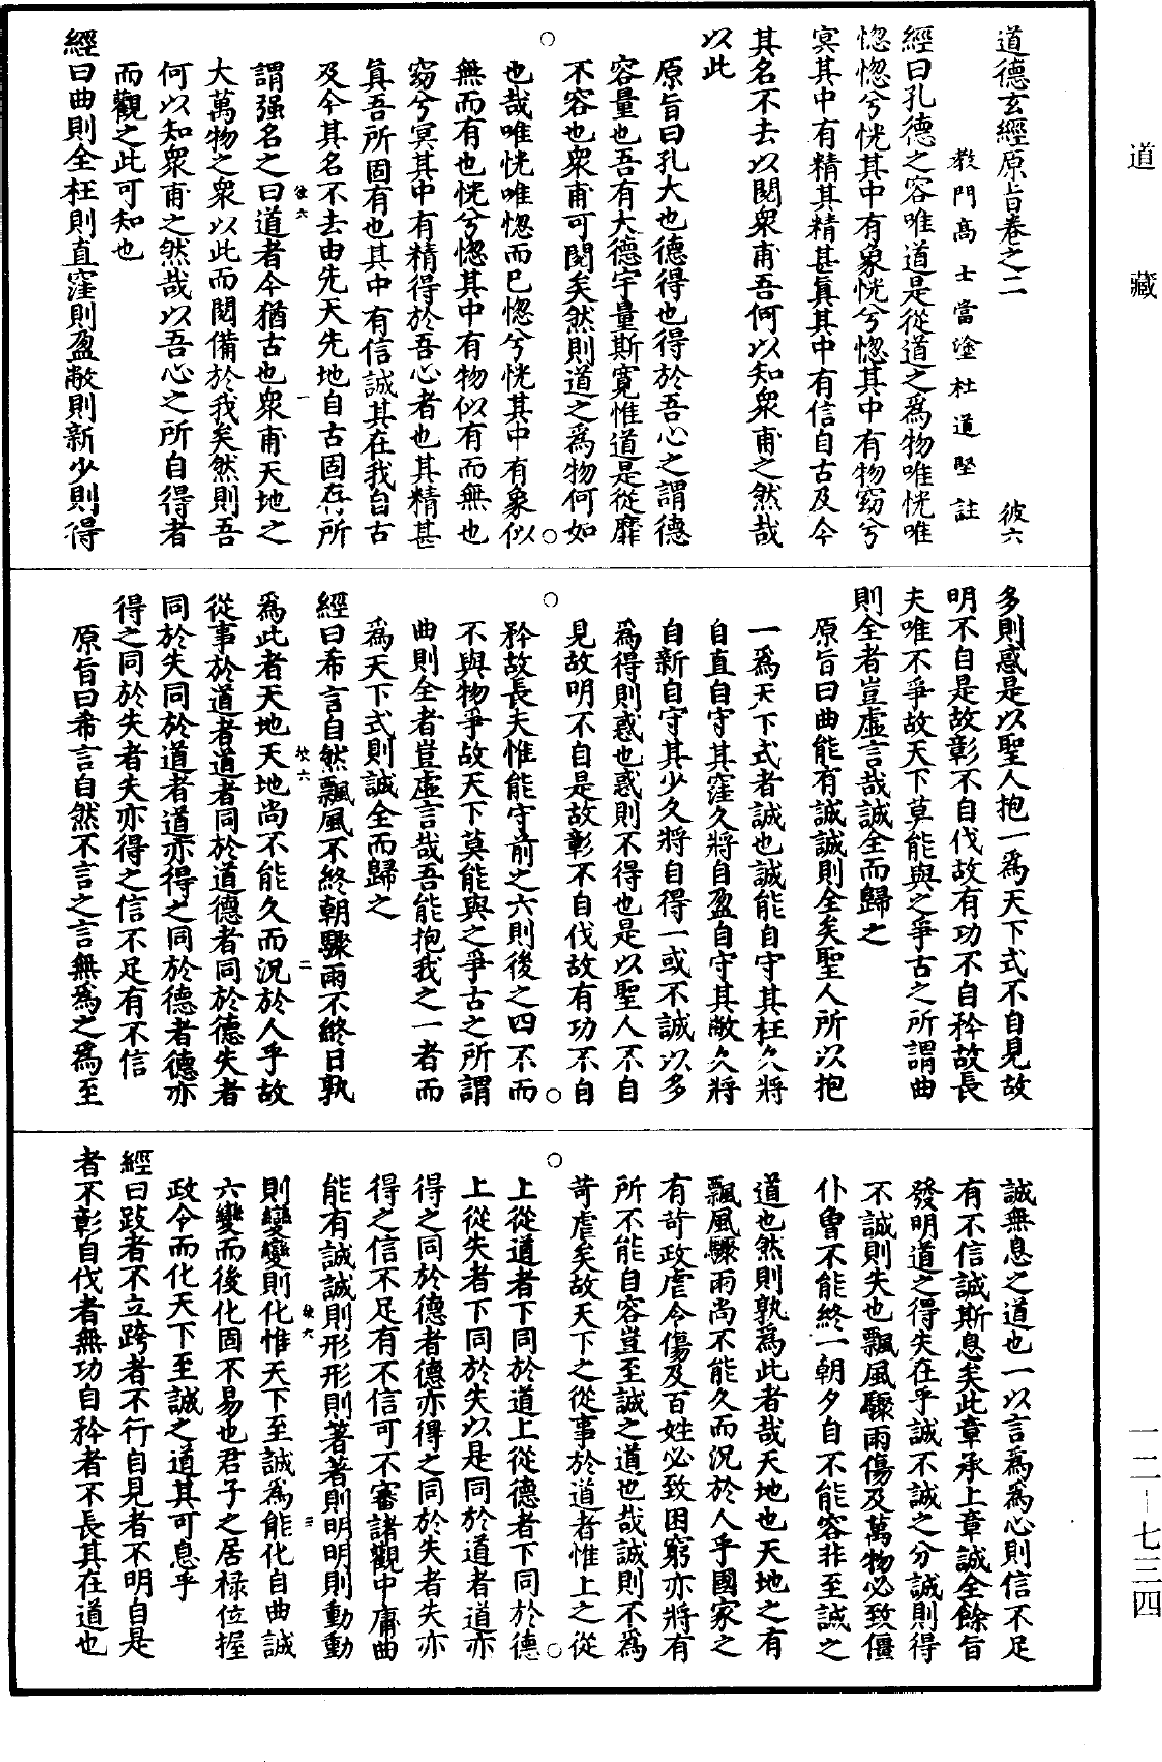 道藏
道德玄經原旨卷之二　彼六
教門高士當塗杜道堅註
經曰孔德之容唯道是從道之爲物唯恍唯
惚惚兮恍其中有象恍兮惚其中有物窈兮
冥其中有精其精甚眞其中有信自古及今
其名不去以閱衆甫吾何以知衆甫之然哉
以此
原旨曰孔大也德得也得於吾心之謂德
容量也吾有大德宇量斯寬惟道是從靡
不容也衆甫可閱矣然則道之爲物何如
也哉唯恍唯惚而已惚兮恍其中有象似
無而有也恍兮惚其中有物似有而無也
窈兮冥其中有精得於吾心者也其精甚
眞吾所固有也其中有信誠其在我自古
及今其名不去由先天先地自古固存所
彼六　一
謂强名之曰道者今猶古也衆甫天地之
大萬物之衆以此而閱備於我矣然則吾
何以知衆甫之然哉以吾心之所自得者
而觀之此可知也
經曰曲則全枉則直窪則盈敝則新少則得
多則惑是以聖人抱一爲天下式不自見故
明不自是故彰不自伐故有功不自矜故長
夫唯不爭故天下莫能與之爭古之所謂曲
則全者豈虛言哉誠全而歸之
原旨曰曲能有誠誠則全矣聖人所以抱
一爲天下式者誠也誠能自守其枉久將
自直自守其窪久將自盈自守其敝久將
自新自守其少久將自得一或不誠以多
爲得則惑也惑則不得也是以聖人不自
見故明不自是故彰不自伐故有功不自
矜故長夫惟能守前之六則後之四不而
不與物爭故天下莫能與之爭古之所謂
曲則全者豈虛言哉吾能抱我之一者而
爲天下式則誠全而歸之
經曰希言自然飄風不終朝驟雨不終日孰
彼六　二
爲此者天地天地尚不能久而況於人乎故
從事於道者道者同於道德者同於德失者
同於失同於道者道亦得之同於德者德亦
得之同於失者失亦得之信不足有不信
原旨曰希言自然不言之言無爲之爲至
誠無息之道也一以言爲爲心則信不足
有不信誠斯息矣此章承上章誠全餘旨
發明道之得失在乎誠不誠之分誠則得
不誠則失也飄風驟雨傷及萬物必致僵
仆曾不能終一朝夕自不能容非至誠之
道也然則孰爲此者哉天地也天地之有
飄風驟雨尚不能久而況於人乎國家之
有苛政虐令傷及百姓必致困窮亦將有
所不能自容豈至誠之道也哉誠則不爲
苛虐矣故天下之從事於道者惟上之從
上從道者下同於道上從德者下同於德
上從失者下同於失以是同於道者道亦
得之同於德者德亦得之同於失者失亦
得之信不足有不信可不審諸觀中庸曲
能有誠誠則形形則著著則明明則動動
彼六　三
則變變則化惟天下至誠爲能化自曲誠
六變而後化固不易也君子之居祿位握
政令而化天下至誠之道其可息乎
經曰跂者不立跨者不行自見者不明自是
者不彰自伐者無功自矜者不長其在道也
一二-七三四